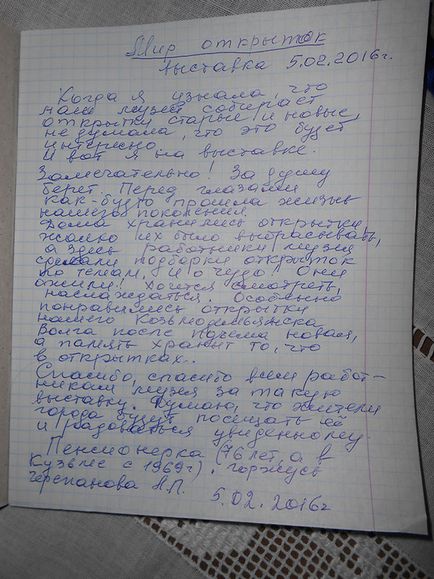 Мир открыток
выставка 5.02.2016г.
Когда я узнала, что
наш музей собирает
открытки старые и новые,
не думала, что это будет
интересно.
И вот я на выставке.
Замечательно! За душу
берет. Перед глазами
как-будто прошла жизнь
нашего поколения.
Дома хранились открытки,
жалко их было выбрасывать,
а здесь работники музея
сделали подборки открыток
по темам, и о чудо! Они
ожили! Хочется смотреть,
наслаждаться. Особенно
понравились открытки
нашего Козьмодемьянска
Волга после подъема новая,
а память хранит то, что
в открытках..
Спасибо, спасибо всем работ-
никам музея за такую
выставку. Думаю, что жители
города будут посещать её
и радоваться увиденному.
Пенсионерка (76 лет, а в
с 1969г). горжусь
Черепанова А.П.
5.02.2016г